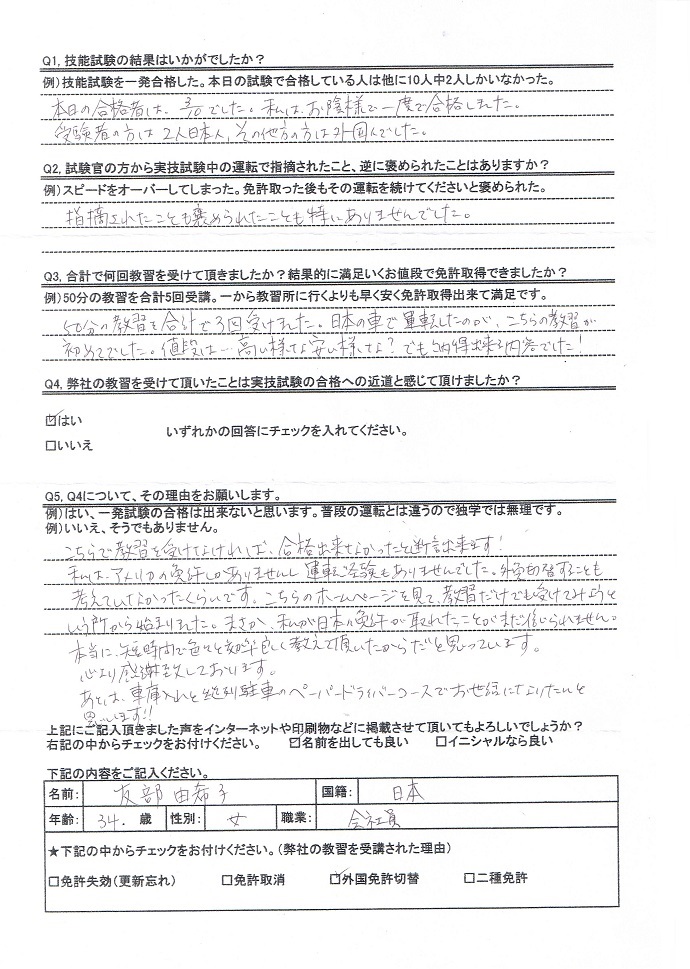 Q1, 技能試験の結果はいかがでしたか？
例）技能試験を一発合格した。本日の試験で合格している人は他に10人中2人しかいなかった。
本日の合格者は、3/10でした。私は、お陰様で一度で合格しました。
受験者の方は2人日本人、その他の方は外国人でした。
Q2, 試験官の方から実技試験中の運転で指摘されたこと、逆に褒められたことはありますか？
例）スピードをオーバーしてしまった。免許取った後もその運転を続けてくださいと褒められた。
指摘されたことも褒められたことも特にありませんでした。
Q3, 合計で何回教習を受けて頂きましたか？結果的に満足いくお値段で免許取得できましたか？
例）50分の教習を合計5回受講。一から教習所に行くよりも早く安く免許取得出来て満足です。
50分の教習を合計で3回受けました。日本の車で運転したのが、こちらの教習が
初めてでした。値段は…高い様な安い様な？でも納得出来る内容でした！
Q4, 弊社の教習を受けて頂いたことは実技試験の合格への近道と感じて頂けましたか？
☑はい
いずれかの回答にチェックを入れてください。
□いいえ
Q5, Q4について、その理由をお願いします。
例）はい、一発試験の合格は出来ないと思います。普段の運転とは違うので独学では無理です。
例）いいえ、そうでもありません。
こちらで教習を受けてなければ、合格出来なかったと断言出来ます！
私は、アメリカの免許しかありませんし運転経験もありませんでした。外免切替することも
考えていなかったくらいです。こちらのホームページを見て、教習だけでも受けてみようと
いう所から始まりました。まさか、私が日本の免許が取れたことがまだ信じられません。
本当に、短時間で色々と効率良く教えて頂いたからだと思っています。
心より感謝致しております。
あとは、車庫入れと縦列駐車のペーパードライバーコースでお世話になりたいと
思います!!
上記にご記入頂きました声をインターネットや印刷物などに掲載させて頂いてもよろしいでしょうか？
右記の中からチェックをお付けください。 ☑名前を出しても良い □イニシャルなら良い
下記の内容をご記入ください。
名前： 友部 由希子 国籍： 日本
年齢： 34. 歳 性別： 女 職業： 会社員
★下記の中からチェックをお付けください。（弊社の教習を受講された理由）
□免許失効（更新忘れ） □免許取消 ☑外国免許切替 □二種免許